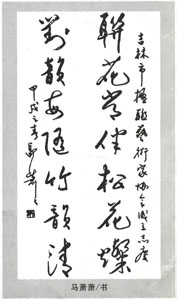 吉林市楹联艺术家协会成立志庆
聯花常伴松花燦
對韻每随竹韻清
甲戌之春馬萧萧
马萧萧/书